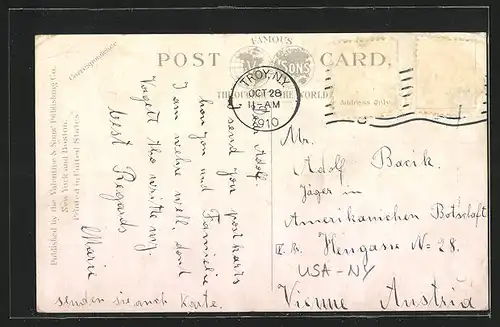 FAMOUS
POST CARD.
& SONS
THROUGHOUT THE WORLD
TROY, N.Y.
OCT 28
11-AM
1910
Address Only
Correspondence
Published by the Valentine & Sons' Publishing Co.
New York and Boston.
Printed in United States
Dear Adolf.
I send you postkarts
hon you and Familie
I am wehre well, dond
Vogett the writte my.
best Regards
Marie
senden sie auch Karte.
Mr.
Adolf Bacik.
Jäger in
Amerikanichen Botschaft
IV. Bz. Heugasse No 28.
USA-NY
Vienne Austria